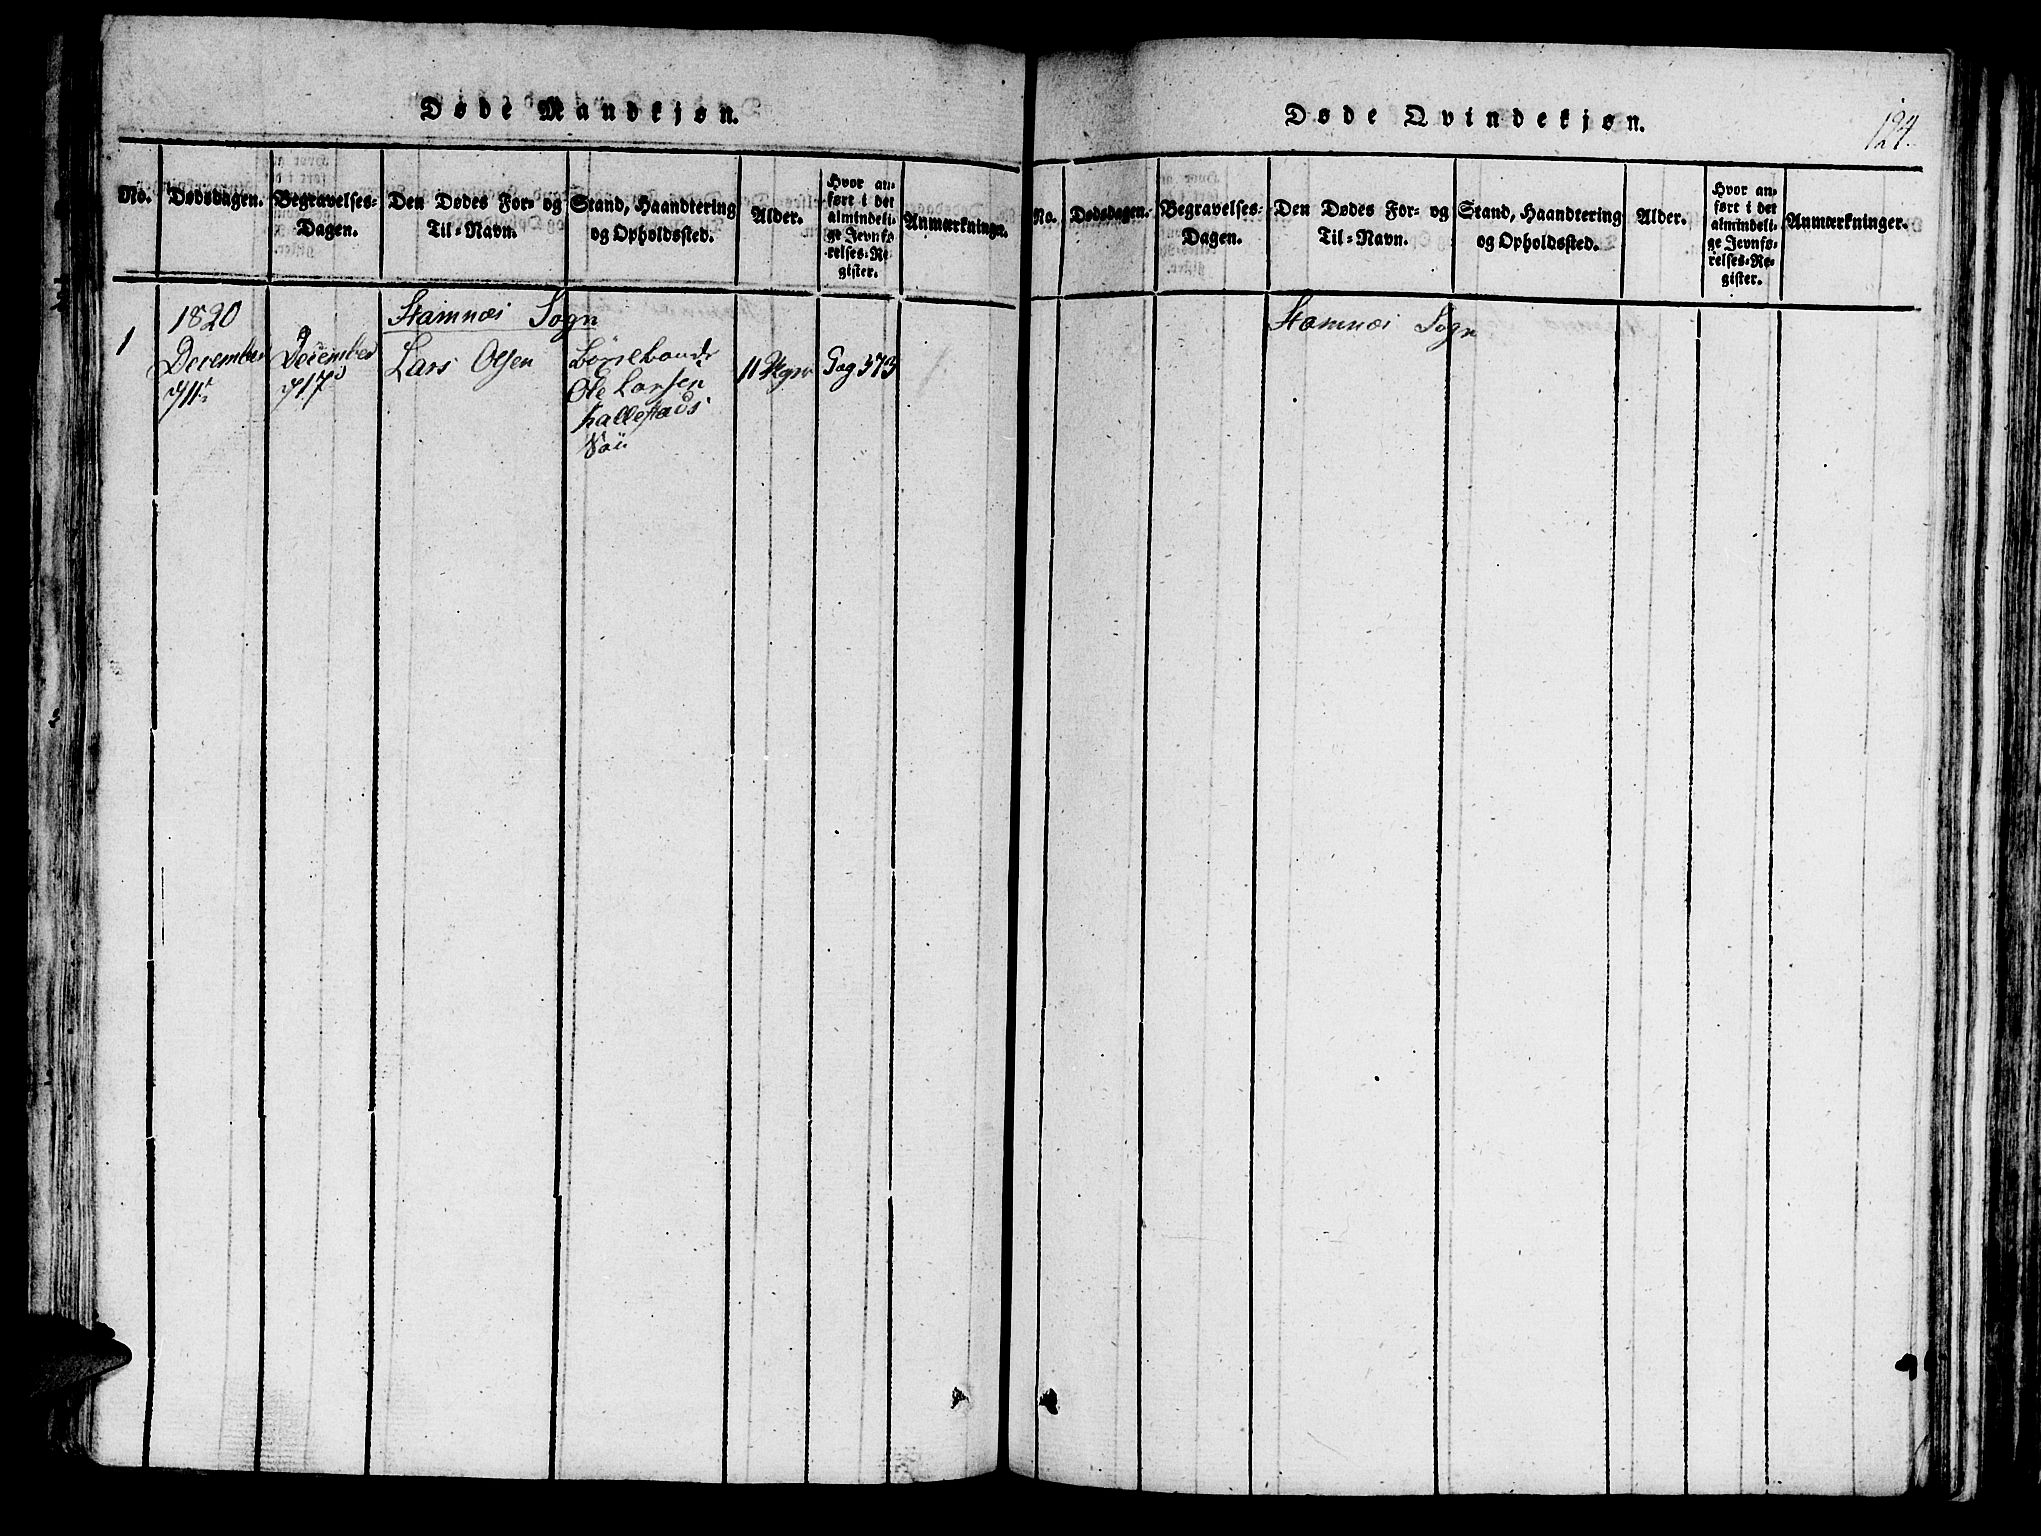 Døde Mandkjøn.
No.
Dødsdagen.
Begravelses-
Dagen.
Den Dødes For- og
Til-Navn.
Stand, Haandtering
og Opholdssted.
Alder.
Hvor an-
ført i det
almindeli-
ge Jevnfø-
relses-Re-
gister.
Anmærkninge.
Stamnæs Sogn
1
1820
December
11
December
17
Lars Olsen
Ole Larsen
hallestads
Søn
11 Uger
Pag 373
Døde Qvindekjøn.
124.
No.
Dødsdagen.
Begravelses-
Dagen.
Den Dødes For- og
Til-Navn.
Stand, Haandtering
og Opholdssted.
Alder.
Hvor an-
ført i det
almindeli-
ge Jevnfø-
relses-Re-
gister.
Anmærkninger.
Stamnæs Sogn